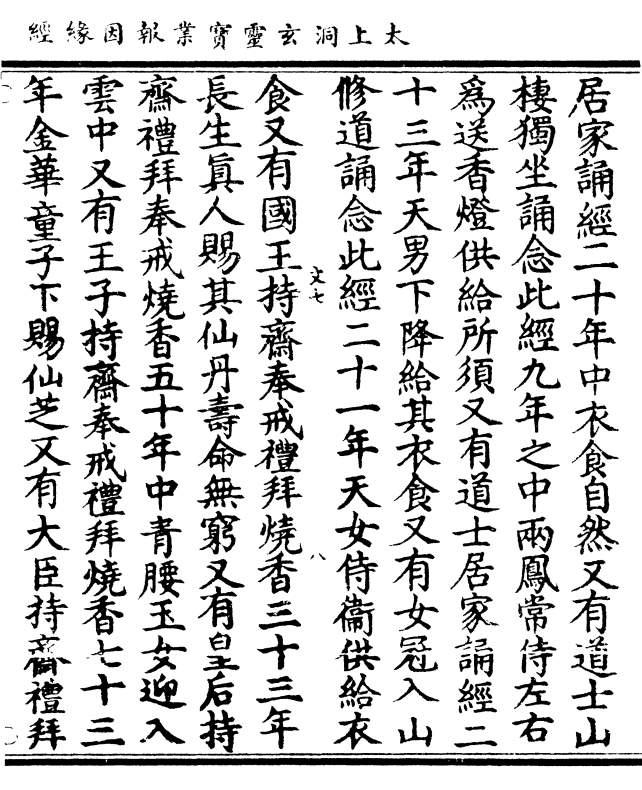 太上洞玄靈寶業報因緣經
居家誦經二十年中衣食自然又有道士山
棲獨坐誦念此經九年之中兩鳳常侍左右
爲送香燈供給所須又有道士居家誦經二
十三年天男下降給其衣食又有女冠入山
修道誦念此經二十一年天女侍衞供給衣
文七
八
食又有國王持齋奉戒禮拜燒香三十三年
長生眞人賜其仙丹壽命無窮又有皇后持
齋禮拜奉戒燒香五十年中青腰玉女迎入
雲中又有王子持齋奉戒禮拜燒香七十三
年金華童子下賜仙芝又有大臣持齋禮拜